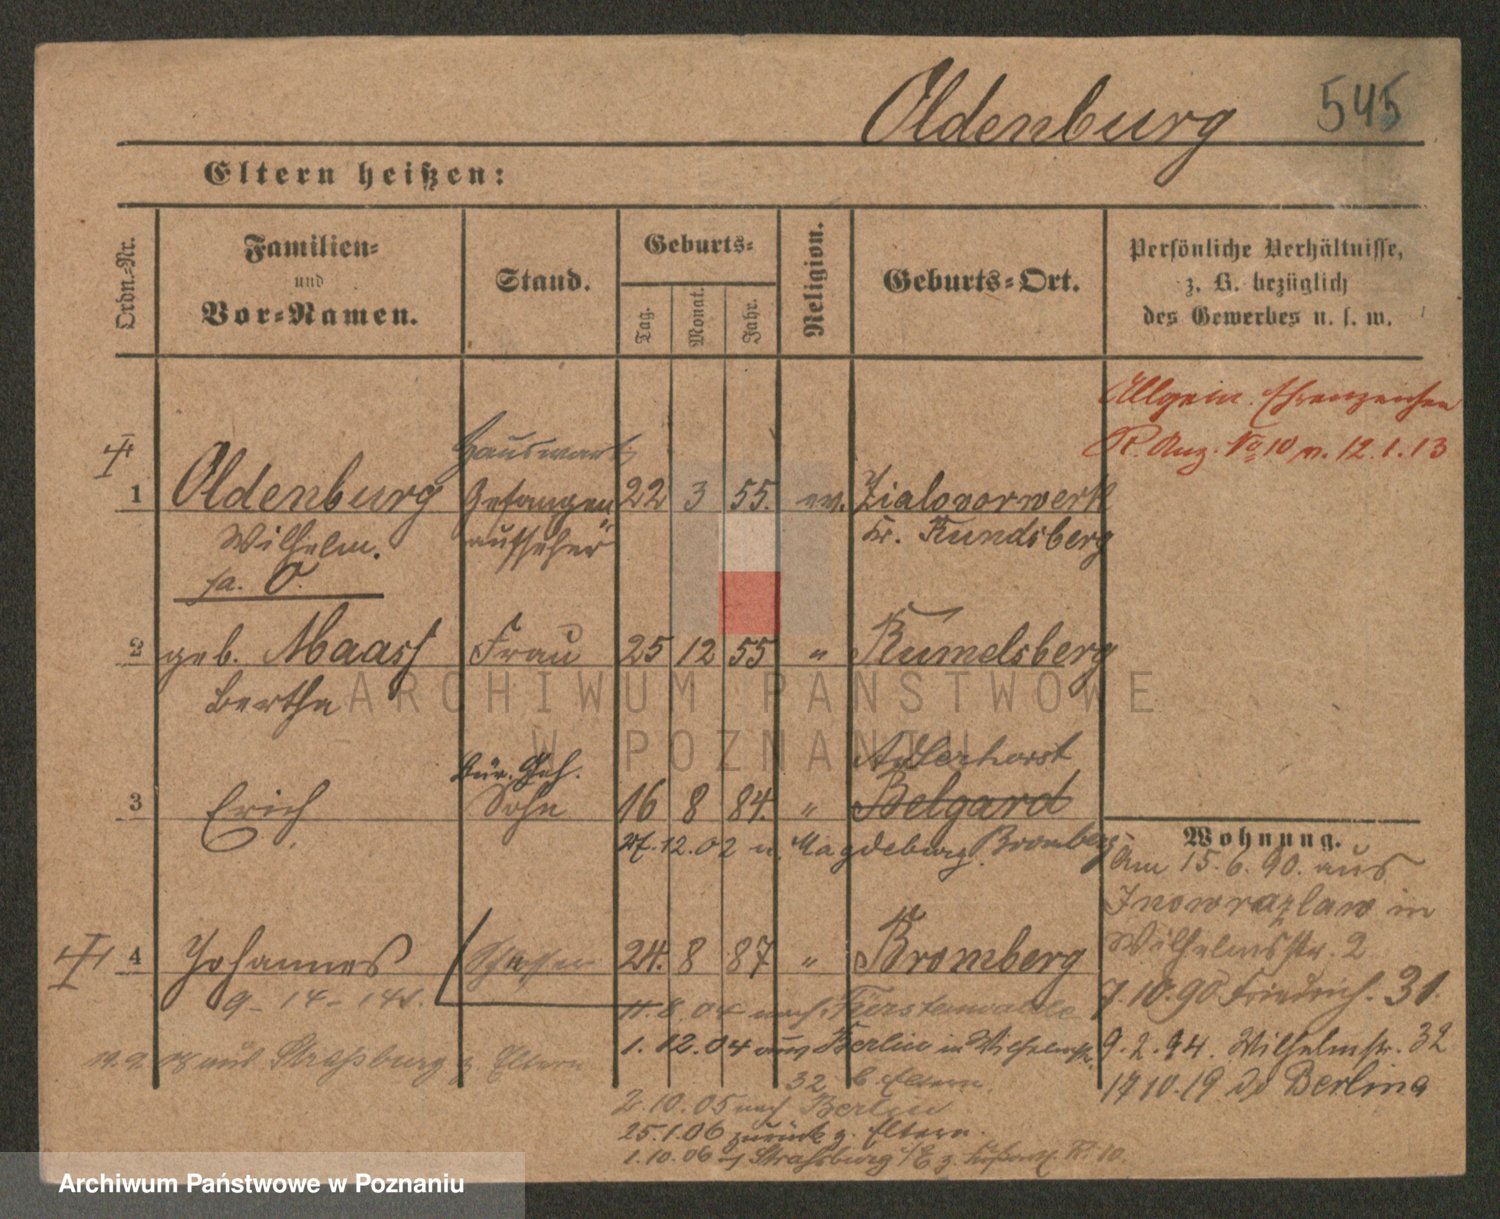 Oldenburg 545
Eltern heißen:
Ordn.-Nr.
Familien-
und
Vor-Namen.
Stand.
Geburts-
Tag.
Monat.
Jahr.
Religion.
Geburts-Ort.
Persönliche Verhältnisse,
z. B. bezüglich
des Gewerbes u. s. w.
Allgem. Ehrenzeichen
R. Anz. No 10 v. 12.1.13
Hauswart
1 Oldenburg Gefangen 22 3 55. ev. Zialovorwerk
Wilhelm. aufseher Kr.
2 geb. Maass Frau 25 12 55 " Rumelsberg
Bertha
ARCHIWUM PAŃSTWOWE
W POZNANIU
Adlerhorst
3 Erich Sohn 16 8 84. " Belgard
27.12.02 n. Magdeburg. Bromberg
Wohnung.
Am 15.6.90. aus
Inowrazlaw in
Wilhelmstr. 2
4 Johannes 24. 8 87 " Bromberg
7.10.90 Friedrich. 31.
9 - 14 - 148.
11.8.04 nach Fürstenwalde
1.12.04 aus Berlin in Wilhelmstr.
9.2.94. Wilhelmstr. 32
aus Straßburg z. Eltern
32 b. Eltern.
17 10.19 Berlin
2.10.05 nach Berlin
25.1.06 zurück z. Eltern.
1.10.06 Strassburg i/E z.
Archiwum Państwowe w Poznaniu